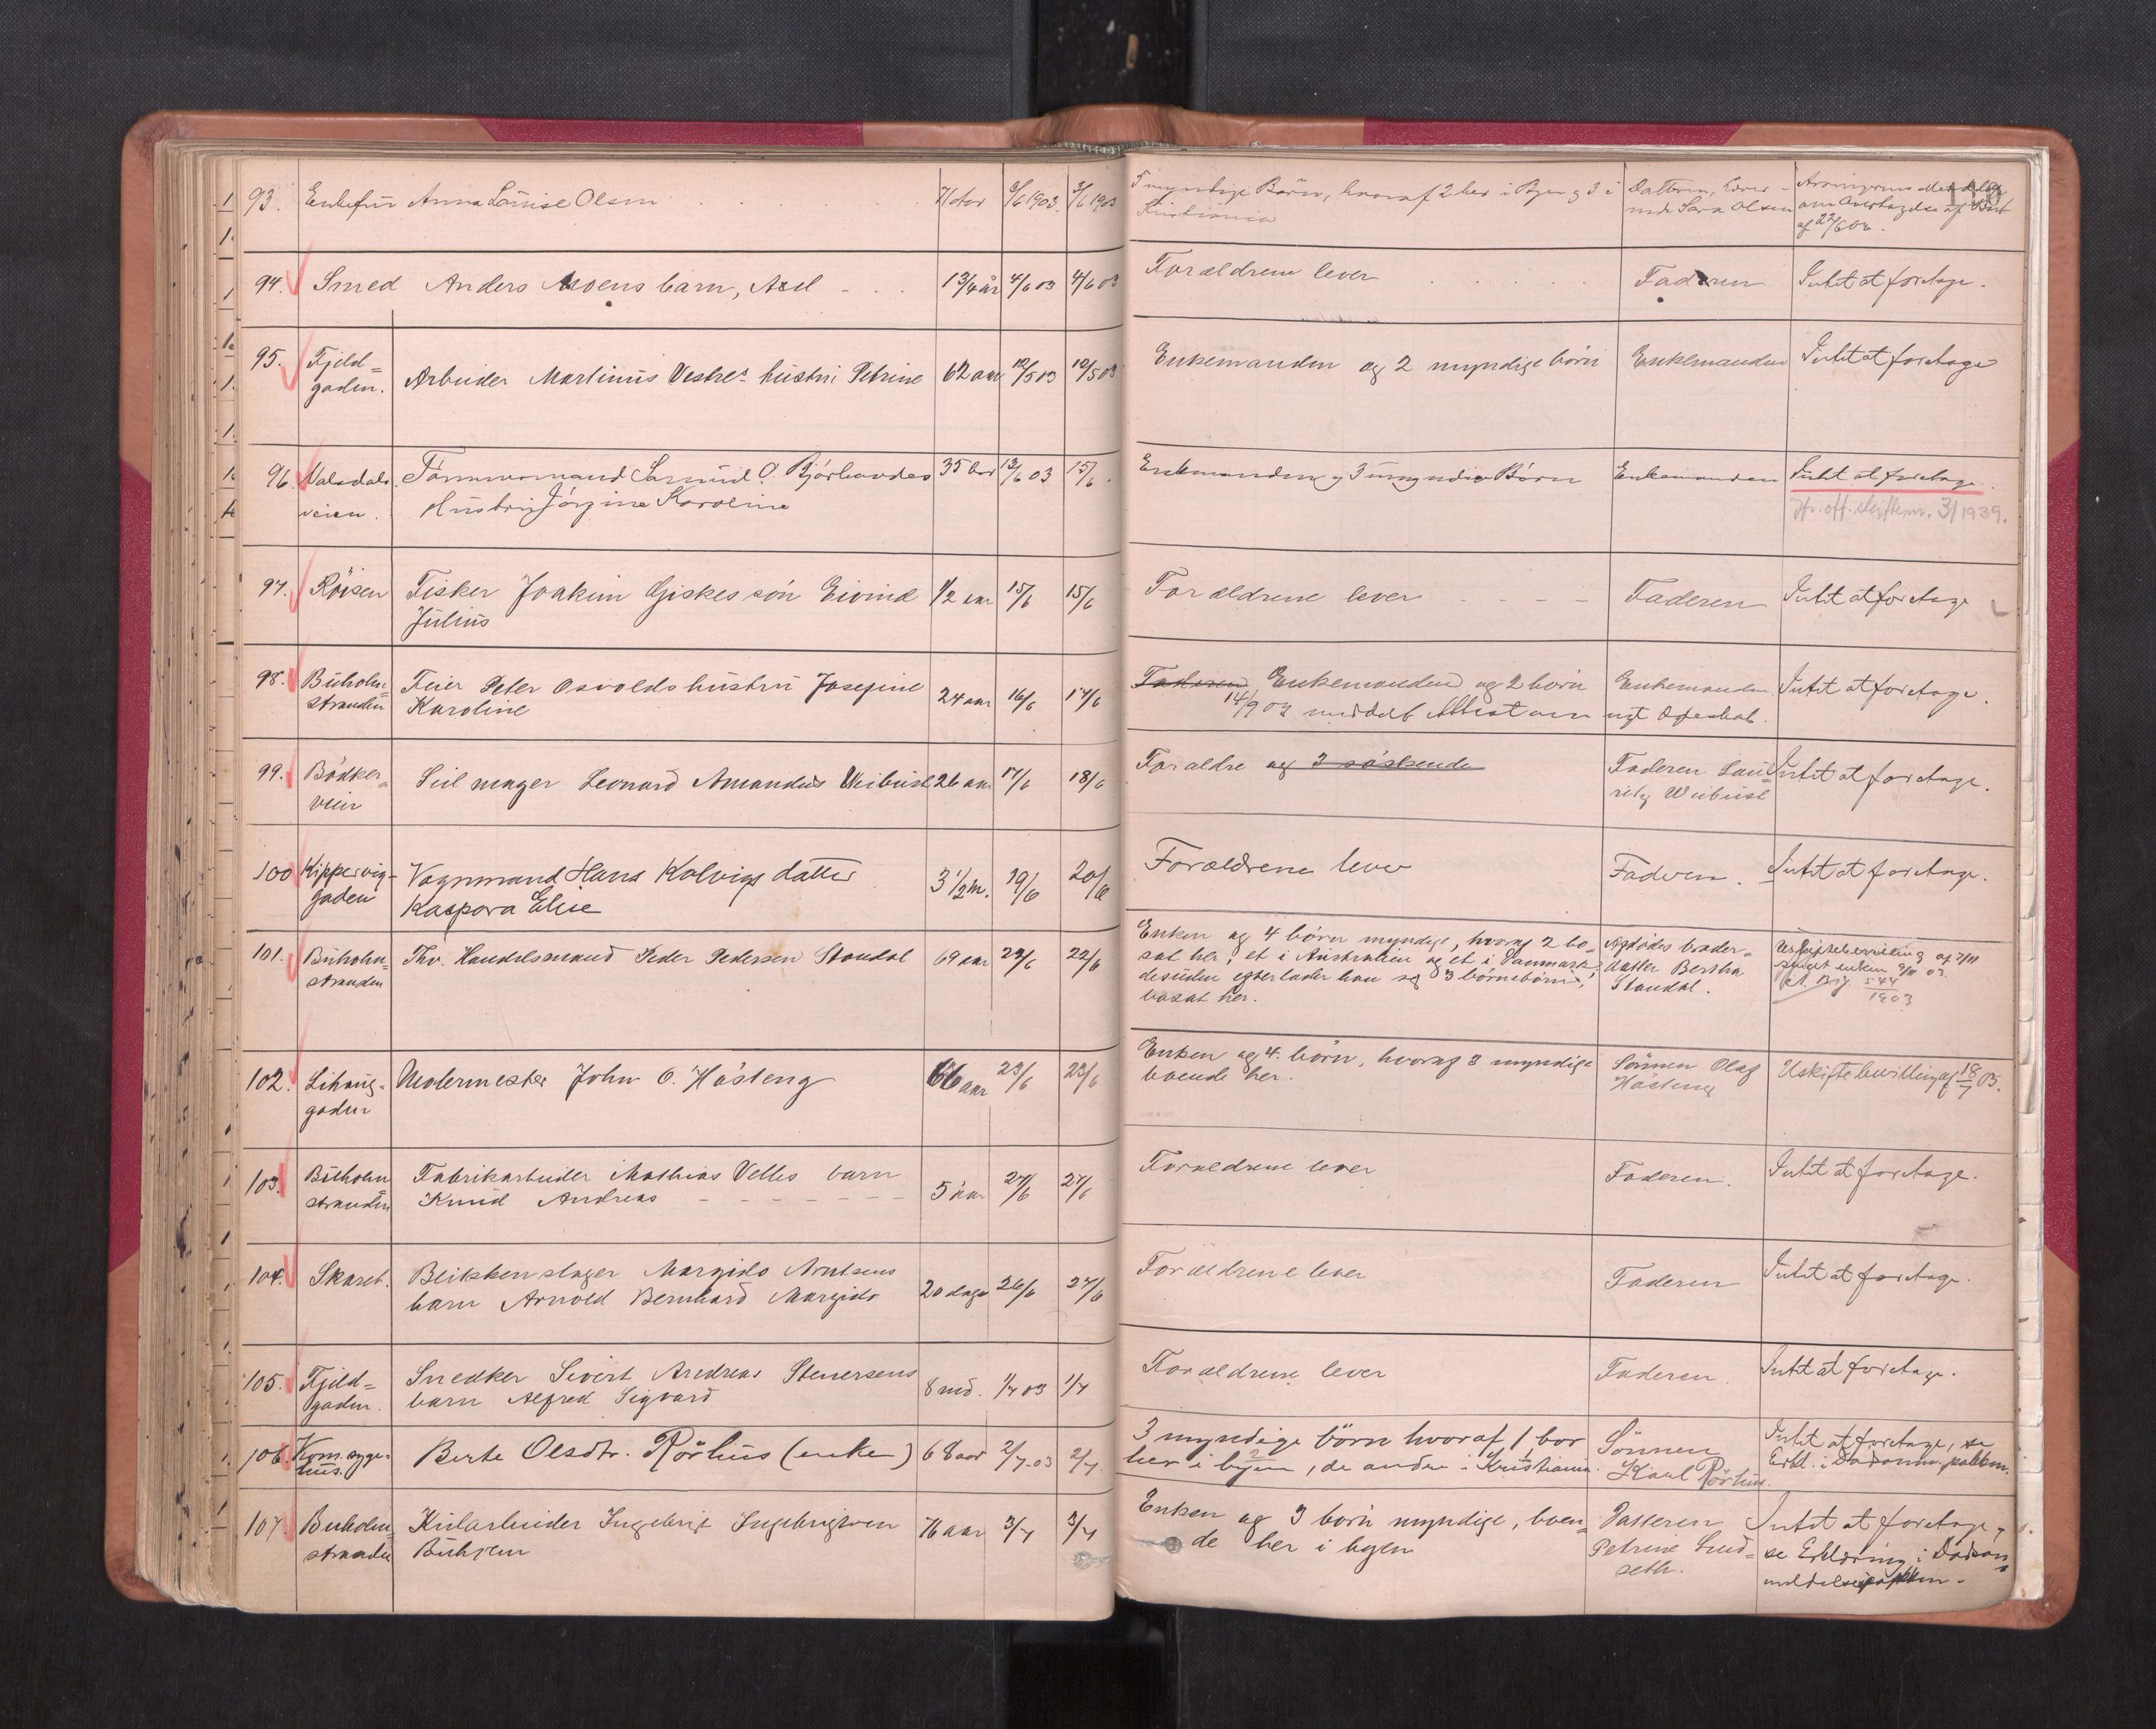 93. Enkefru Anna Lovise Olsen 71 aar 3/6 1903 3/6 1903 5 myndige Børn, hvoraf 2 her i Byen og 3 i Kristiania Datteren, Sara Olsen af 22/6 03.
94. Smed Anders Moens barn, Axel 1 3/4 år 4/6 03 4/6 03 Forældrene lever Faderen Intet at foretage.
95. Fjeld=
gaden. Arbeider Martinus Vestres hustru Petrine 62 aar 12/5 03 12/5 03 Enkemanden og 2 myndige børn Enkemanden Intet at foretage
96. Valsdals
veien. Tømmermand Samuel O. Bjørhovdes 35 aar 13/6 03 15/6. Enkemanden og 3 umyndige Børn Enkemanden Intet at foretage.
Hustru Jørgine Karoline 3/1939.
97. Röisen Fisker Joakim Giskes søn Eivind 1/2 aar 15/6 15/6 Forældrene lever Faderen Intet at foretage
Julius
98. Buholm=
stranden Feier Peter Osvolds hustru Josefine
Karoline 24 aar 16/6 17/6 Faderen Enkemanden og 2 børn Enkemanden Intet at foretage.
14/9 03 meddelt Attest om nyt Ægteskab.
99. Bødker=
veien Seilmager Leonard Amandus Weibust 26 aar 17/6 18/6 Forældre og 3 søskende Faderen Lau=
ritz Weibust Intet at foretage.
100 Kippervig-
gaden Vognmand Hans Kolvigs datter
Kaspara Elise 3 1/2 m. 19/6 20/6 Forældrene lever Faderen. Intet at foretage.
101. Buholm=
stranden Fhv. Handelsmand Peder Pedersen Standal 69 aar 22/6 22/6 Enken og 4 børn myndige, hvoraf 2 bo-
sat her, et i Australien og et i Danmark,
desuden efterlader han sig 3 børnebørn,
bosat her. Afdødes broder-
datter Bertha
Standal. Uskiftebevilling af 7/11
enken 9/11 03.
544
1903
102. Lihaug-
gaden Malermester John O. Håsteng 66 aar 23/6 23/6 Enken og 4 børn, hvoraf 3 myndige
boende her. Sønnen Olaf
Håsteng Uskiftebevilling af 18/7 03.
103. Buholm
stranden Fabrikarbeider Mathias Velles barn
Knud Andreas 5 aar 27/6 27/6 Forældrene lever Faderen. Intet at foretage.
104. Skaret. Blikkenslager Margido Arntsens
barn Arnold Bernhard Margido 20 dage 26/6 27/6 Forældrene lever Faderen Intet at foretage.
105. Fjeld=
gaden. Snedker Sivert Andreas Stenersens
barn Alfred Sigvard 8 md. 1/7 03 1/7 Forældrene lever Faderen. Intet at foretage.
106. Kom. syge-
hus. Berte Olsdtr. Rørhus (enke) 68 aar 2/7-03 2/7. 3 myndige børn hvoraf 1 bor
her i byen, de andre i Kristiania. Sønnen
Karl Rørhus. Intet at foretage, se
Erkl. i Dødsanm. pakken.
107. Buholm=
stranden Kularbeider Ingebrigt Ingebrigtsen
Buhjem 76 aar 3/7 3/7 Enken og 3 børn myndige, boen=
de her i byen Datteren
Petrine Lud=
seth. Intet at foretage,
se Erklæring i Dødsan=
meldelsespakken.